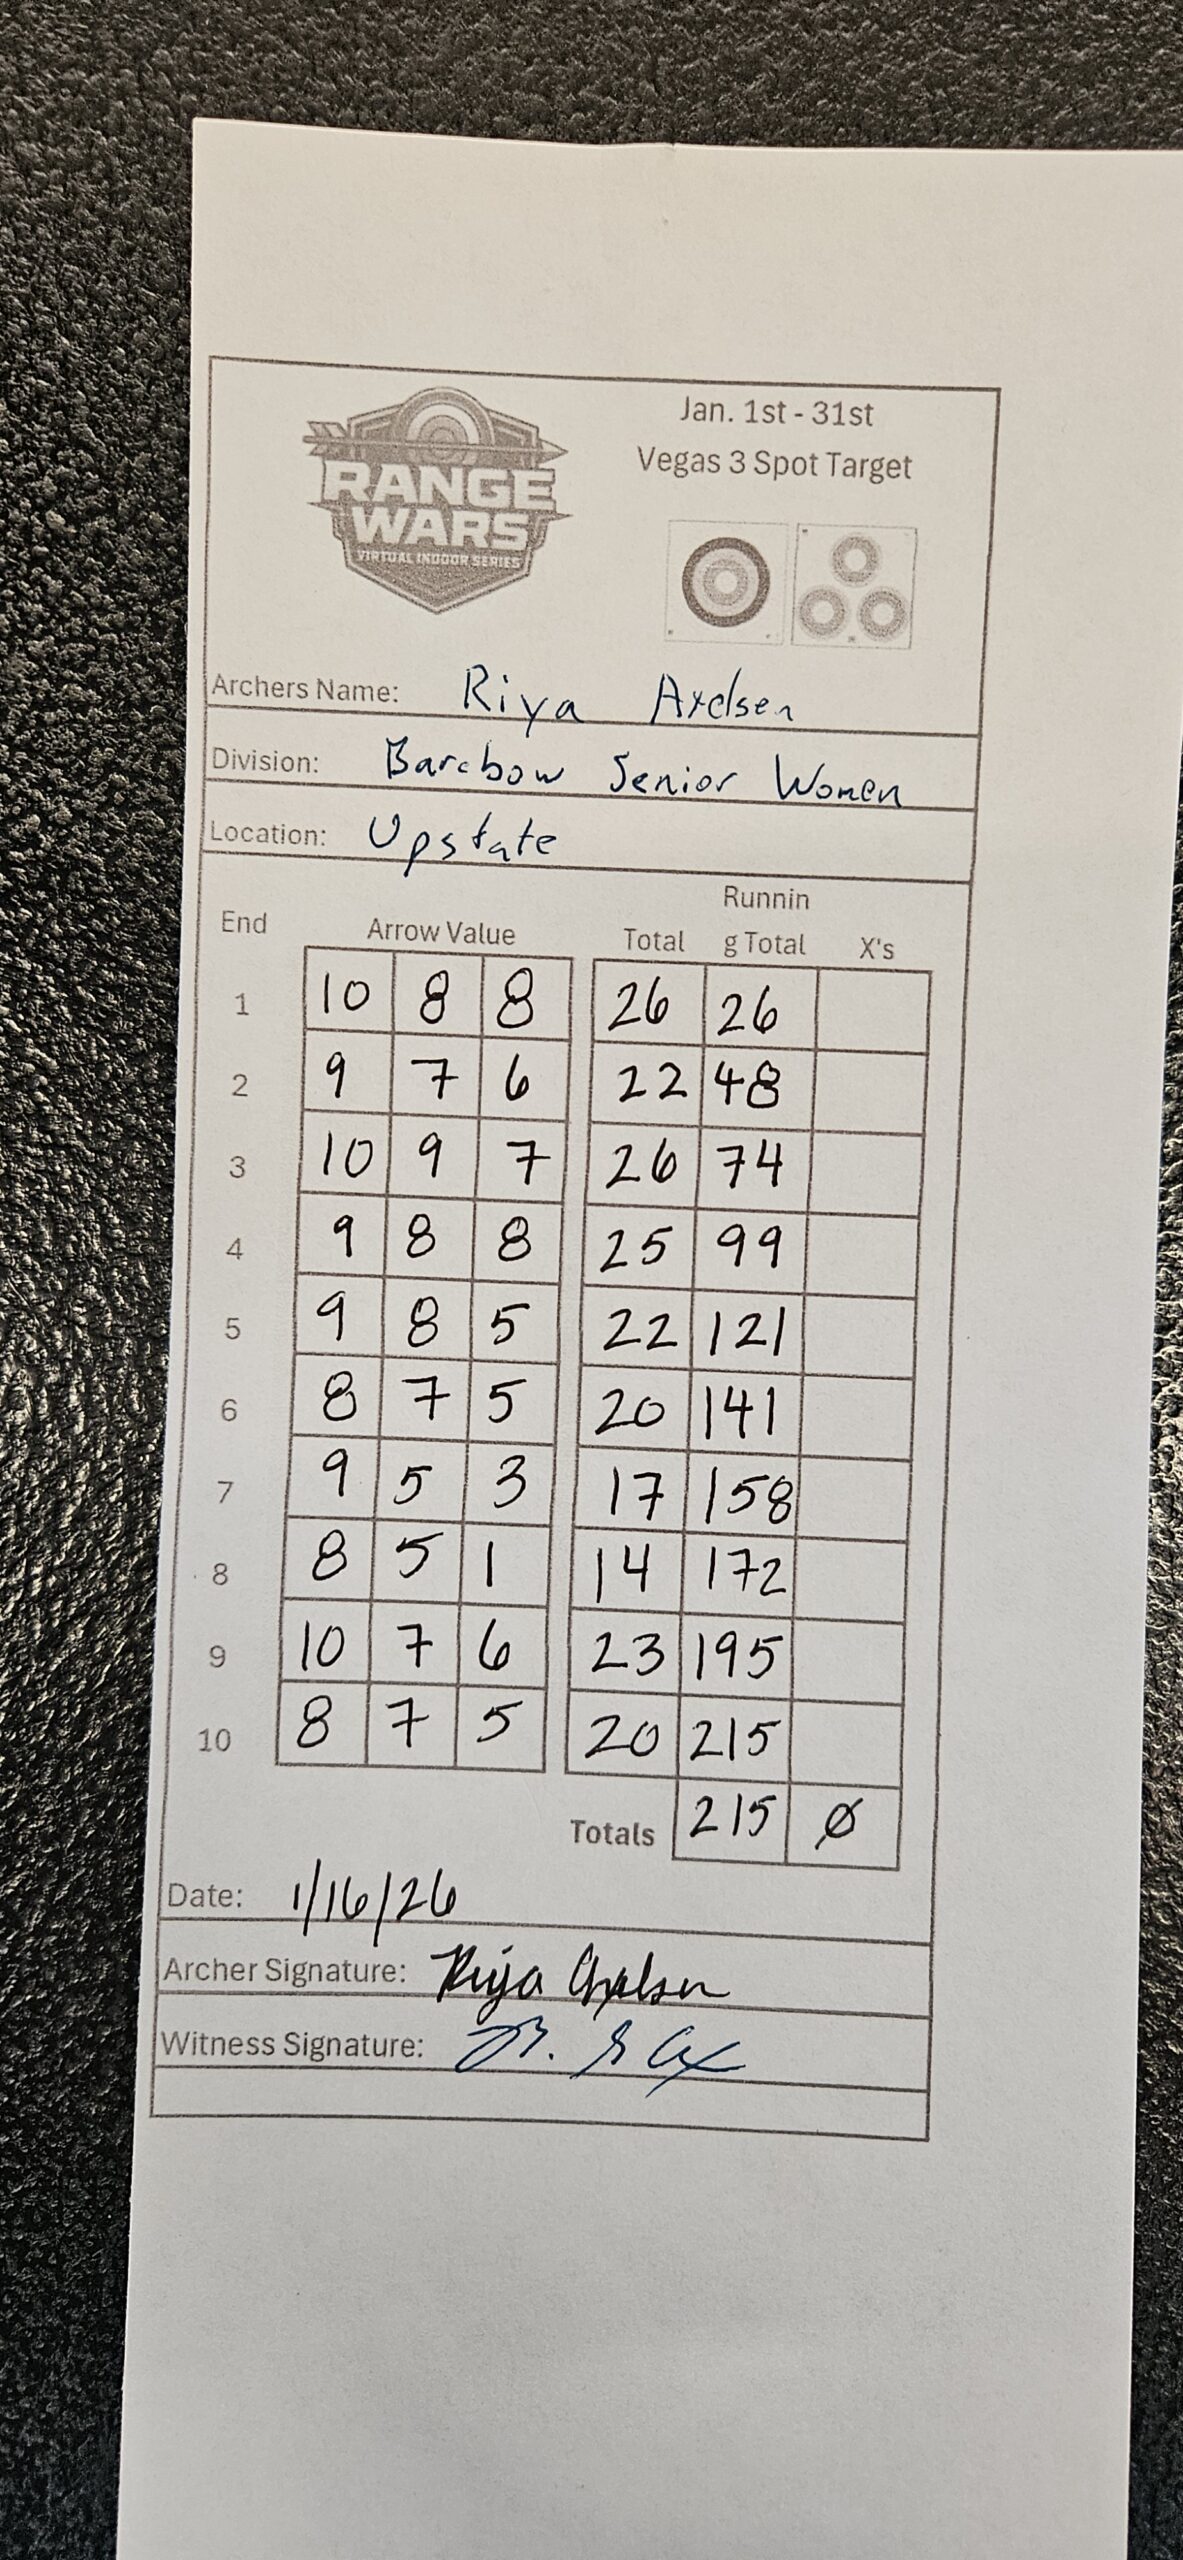 RANGE
WARS
VIRTUAL INDOOR SERIES
Jan. 1st - 31st
Vegas 3 Spot Target
Archers Name: Riya Axelsen
Division: Barebow Senior Women
Location: Upstate
End Arrow Value Total Runnin g Total X's
1 10 8 8 26 26
2 9 7 6 22 48
3 10 9 7 26 74
4 9 8 8 25 99
5 9 8 5 22 121
6 8 7 5 20 141
7 9 5 3 17 158
8 8 5 1 14 172
9 10 7 6 23 195
10 8 7 5 20 215
Totals 215 Ø
Date: 1/16/26
Archer Signature: Riya Axelsen
Witness Signature: